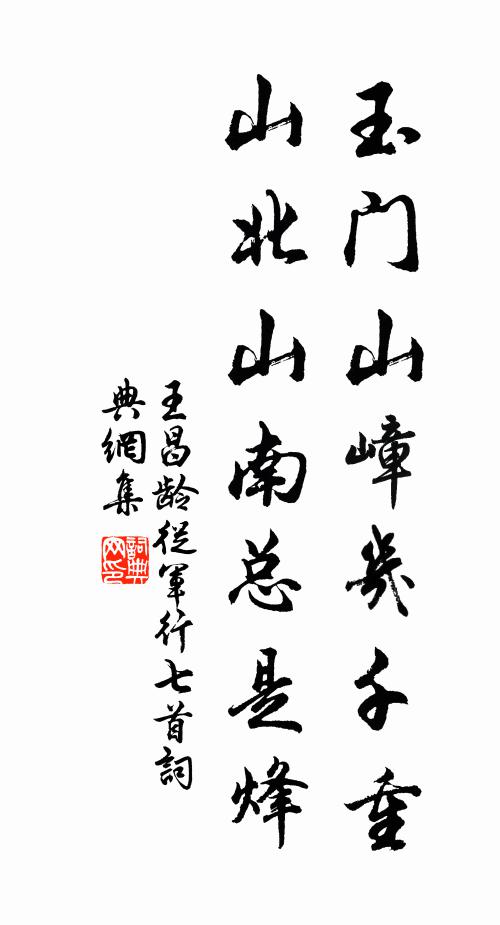 玉门山嶂幾千重
山北山南总是烽
王昌龄從軍行七首詞
典網集
詞典网印